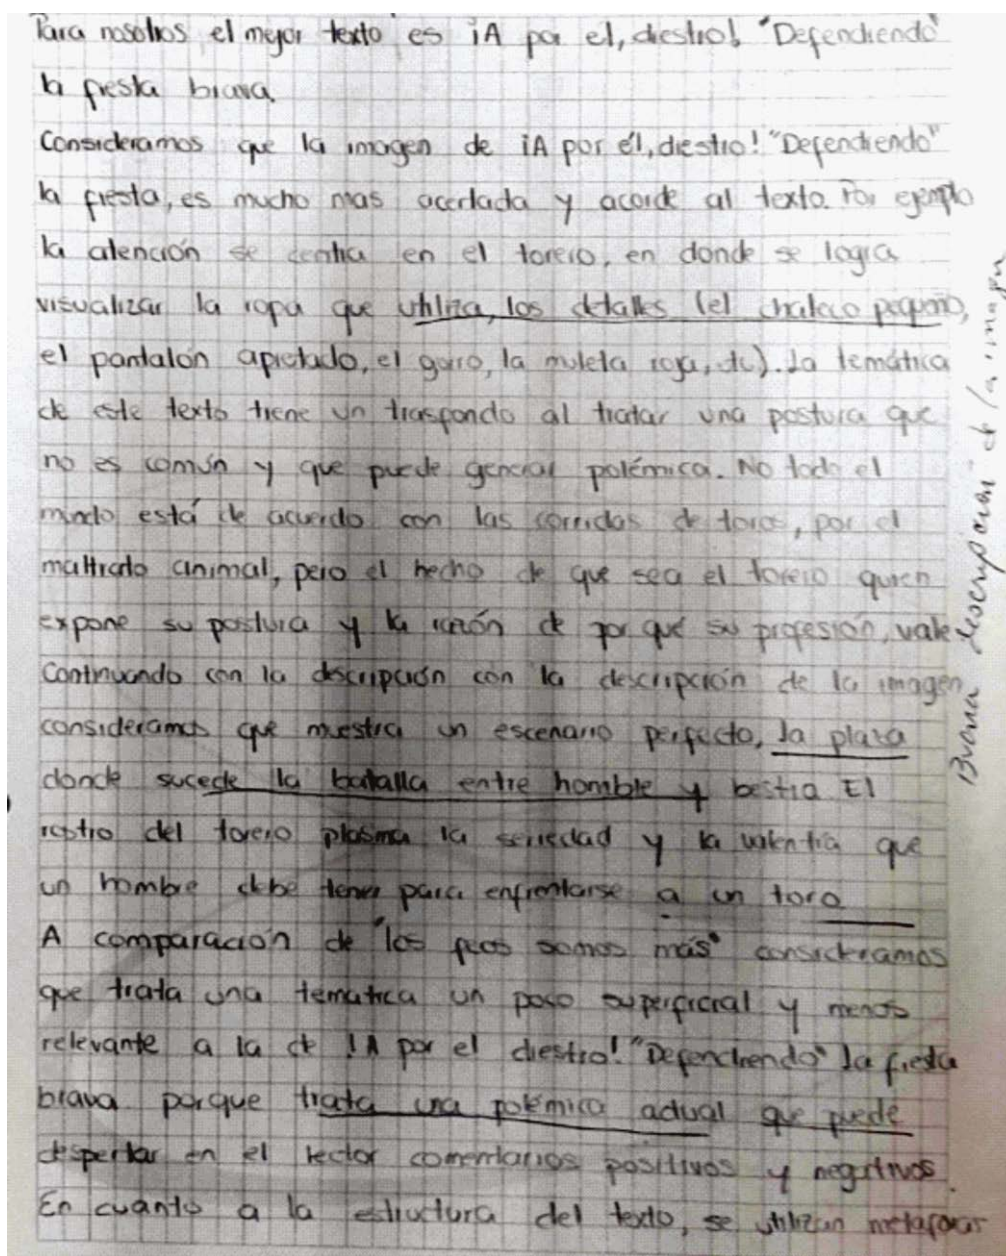 Para nosotros el mejor texto es ¡A por el, diestro! "Defendiendo"
la fiesta brava.
Consideramos que la imagen de ¡A por él, diestro! "Defendiendo"
la fiesta, es mucho mas acertada y acorde al texto. Por ejemplo
la atención se centra en el torero, en donde se logra
visualizar la ropa que utiliza, los detalles (el chaleco pequeño,
el pantalón apretado, el gorro, la muleta roja, etc). La temática
de este texto tiene un trasfondo al tratar una postura que
no es común y que puede generar polémica. No todo el
mundo está de acuerdo con las corridas de toros, por el
maltrato animal, pero el hecho de que sea el torero quien
expone su postura y la razón de por qué su profesión, vale.
Continuando con la descripción con la descripción de la imagen
consideramos que muestra un escenario perfecto, la plaza
donde sucede la batalla entre hombre y bestia El
rostro del torero plasma la seriedad y la valentía que
un hombre debe tener para enfrentarse a un toro
A comparación de "los feos somos más" consideramos
que trata una tematica un poco superficial y menos
relevante a la de !A por el diestro! "Defendiendo" la fiesta
brava porque trata una polémica actual que puede
despertar en el lector comentarios positivos y negativos.
En cuanto a la estructura del texto, se utilizan metaforas
Buena descripción de la imagen